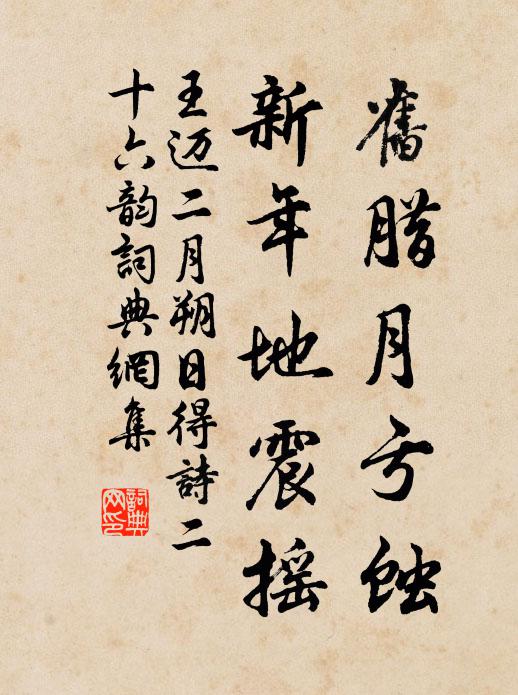 舊腊月亏蝕
新年地震摇
王迈二月朔日得詩二
十六韵詞典網集
詞典
网印